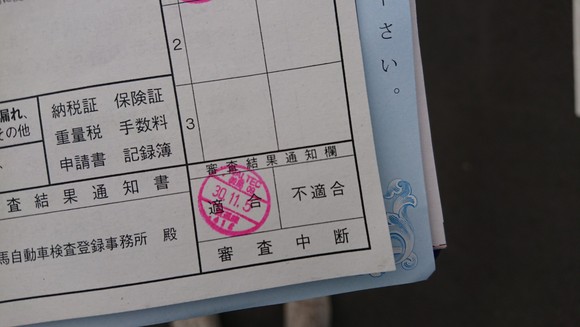 さい。
2
漏れ、 納税証 保険証
その他 重量税 手数料
申請書 記録簿
3
審査結果通知欄
査結果通知書
30.11.5
適合 不適合
馬自動車検査登録事務所 殿
審査中断